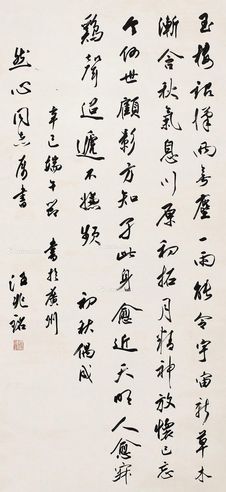 玉漢两無塵一雨能令宇宙新草木
漸含秋氣息川原初拓月精神放懷已忘
今何世顧影方知子此身愈近天明人愈寐
鷄聲迢遞不嫌頻 初秋偶成
辛巳端午節 書於廣州 汪兆銘
然心同志屬書